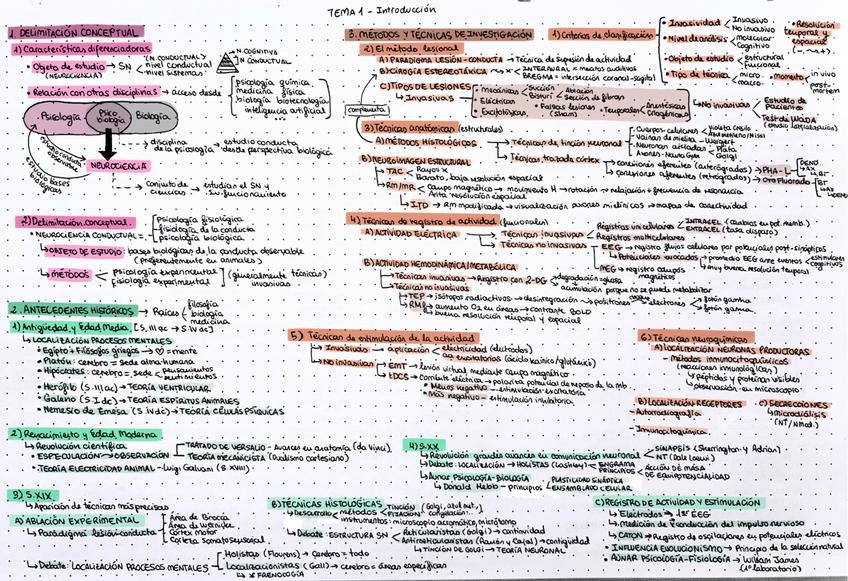 TEMA 1 - Introducción
1. DELIMITACIÓN CONCEPTUAL
1) Características diferenciadoras
Objeto de estudio → SN
(NEUROCIENCIA)
(N. CONDUCTUAL)
nivel conductual
nivel sistemas
N. COGNITIVA
N. CONDUCTUAL
Relación con otras disciplinas → acceso desde
psicología química
medicina física
biología biotecnología
inteligencia artificial
Psicología
Psico
biología
Biología
disciplina
de la psicología
estudio conducta
desde perspectiva biológica
NEUROCIENCIA
estudio bases
biológicas
conjunto de
ciencias
estudian el SN y
su funcionamiento
2) Delimitación conceptual
NEUROCIENCIA CONDUCTUAL =
psicología fisiológica
fisiología de la conducta
psicología biológica
OBJETO DE ESTUDIO: bases biológicas de la conducta observable
(preferentemente en animales)
MÉTODOS
Psicología experimental
Fisiología experimental
(generalmente técnicas)
invasivas
2. ANTECEDENTES HISTÓRICOS → Raíces
filosofía
biología
medicina
1) Antigüedad y Edad Media [S. III ac → S. IV dc]
LOCALIZACIÓN PROCESOS MENTALES
Egipto + Filósofos griegos → ♡ = mente
Platón: cerebro = sede alma humana
Hipócrates: cerebro = sede
pensamientos
sentimientos
Herófilo (S. III ac) → TEORÍA VENTRICULAR
Galeno (S. I dc) → TEORÍA ESPÍRITUS ANIMALES
Nemesio de Emesa (S. IV dc) → TEORÍA CÉLULAS PSÍQUICAS
2) Renacimiento y Edad Moderna
Revolución científica
ESPECULACIÓN → OBSERVACIÓN
TRATADO DE VERSALIO - Avances en anatomía (da Vinci)
TEORÍA MECANICISTA (Dualismo cartesiano)
TEORÍA ELECTRICIDAD ANIMAL - Luigi Galvani (S. XVIII)
3) S. XIX
Aparición de técnicas más precisas
A) ABLACIÓN EXPERIMENTAL
Paradigma lesión-conducta
Área de Brocca
Área de Wernicke
Cortex motor
Corteza somatosensorial
Debate: LOCALIZACIÓN PROCESOS MENTALES
Holistas (Flourens) → cerebro = todo
Localizacionistas (Gall) → cerebro = áreas específicas
FRENOLOGÍA
3. MÉTODOS Y TÉCNICAS DE INVESTIGACIÓN
1) Criterios de clasificación
Invasividad
Invasivo
No invasivo
Nivel de análisis
molecular
Cognitivo
Objeto de estudio
estructural
funcional
Tipo de técnica
micro.
macro.
Resolución
temporal y
espacial
Momento
in vivo
post-
mortem
2) El método lesional
A) PARADIGMA LESIÓN-CONDUCTA → Técnica de supresión de actividad
B) CIRUGÍA ESTEREOTÁXICA
INTERAURAL = meatos auditivos
BREGMA = intersección coronal-sagital
C) TIPOS DE LESIONES
Invasivas
Mecánicas
Succión Ablación
Bisturí Sección de fibras
Eléctricas
Excitotóxicas
Falsas lesiones
(Sham)
Temporales
Anestésicas
Criogénicas
No invasivas
Estudio de
pacientes
Test de WADA
complementa
3) Técnicas anatómicas (estructurales)
A) MÉTODOS HISTOLÓGICOS
Técnicas de tinción neuronal
Cuerpos celulares
Vainas de mielina
Neuronas aisladas
Violeta cresilo
Weigert
Golgi
Técnicas trazado cortex
conexiones aferentes (anterógrados) → PHA-L
conexiones eferentes (retrógrados) → Oro Fluorado
B) NEUROIMAGEN ESTRUCTURAL
TAC
Rayos X
Barato, baja resolución espacial
RM/MR
campo magnético → movimiento H → rotación → relajación → frecuencia de resonancia
Alta resolución espacial
ITD → RM modificada → visualización axones mielínicos → mapas de conectividad
4) Técnicas de registro de actividad (funcionales)
A) ACTIVIDAD ELÉCTRICA
Técnicas invasivas
Registros unicelulares
Registros multicelulares
INTRACEL (cambios en pot. memb.)
EXTRACEL (tasa disparo)
Técnicas no invasivas
EEG → registro flujos celulares por potenciales post-sinápticos
Potenciales evocados → promedio EEG ante eventos
estímulos
cognitivos
MEG → registro campos
magnéticos
muy buena resolución temporal
B) ACTIVIDAD HEMODINÁMICA/METABÓLICA
Técnicas invasivas → Registro con 2-DG
degradación glucosa
acumulación porque no se puede metabolizar
Técnicas no invasivas
TEP → isótopos radiactivos → desintegración → positrones
electrones
fotón gamma
fotón gamma
RMf
aumento O2 en áreas → contraste BOLD
buena resolución temporal y espacial
5) Técnicas de estimulación de la actividad
Invasivas → aplicación
electricidad (electrodos)
aa excitatorios (ácido kaínico/glutámico)
No invasivas
EMT → lesión virtual mediante campo magnético
tDCS → Corriente eléctrica → polariza potencial de reposo de la mb.
Menos negativo - estimulación excitatoria
Más negativo - estimulación inhibitoria
6) Técnicas neuroquímicas
A) LOCALIZACIÓN NEURONAS PRODUCTORAS
Métodos inmunocitoquímicos
(reacciones inmunológicas)
péptidos y proteínas visibles
observación en microscopio
B) LOCALIZACIÓN RECEPTORES
Autorradiografía
Inmunocitoquímica
C) SECRECIONES
microdiálisis
(NT/Nmod.)
4) S. XX
Revolución grandes avances en comunicación neuronal
SINAPSIS (Sherrington y Adrian)
NT (Dale Loewi)
Debate: LOCALIZACIÓN → HOLISTAS (Lashley)
ENGRAMA
PRINCIPIOS
ACCIÓN DE MASA
DE EQUIPOTENCIALIDAD
Aunar PSICOLOGÍA-BIOLOGÍA
Donald Hebb - principios
PLASTICIDAD SINÁPTICA
ENSAMBLADO CELULAR
B) TÉCNICAS HISTOLÓGICAS
Desarrollo
métodos
TINCIÓN (Golgi, azul met.)
FIJACIÓN congelación
instrumentos: microscopio acromático, micrótomo
Debate: ESTRUCTURA SN
Reticularistas (Golgi) → continuidad
Antirreticularistas (Ramón y Cajal) → contigüidad
TINCIÓN DE GOLGI → TEORÍA NEURONAL
C) REGISTRO DE ACTIVIDAD Y ESTIMULACIÓN
Electrodos → 1er EEG
Medición de conducción del impulso nervioso
CATON → Registro de oscilaciones en potenciales eléctricos
INFLUENCIA EVOLUCIONISMO → Principio de la selección natural
AUNAR PSICOLOGÍA-FISIOLOGÍA → William James
(1er laboratorio)